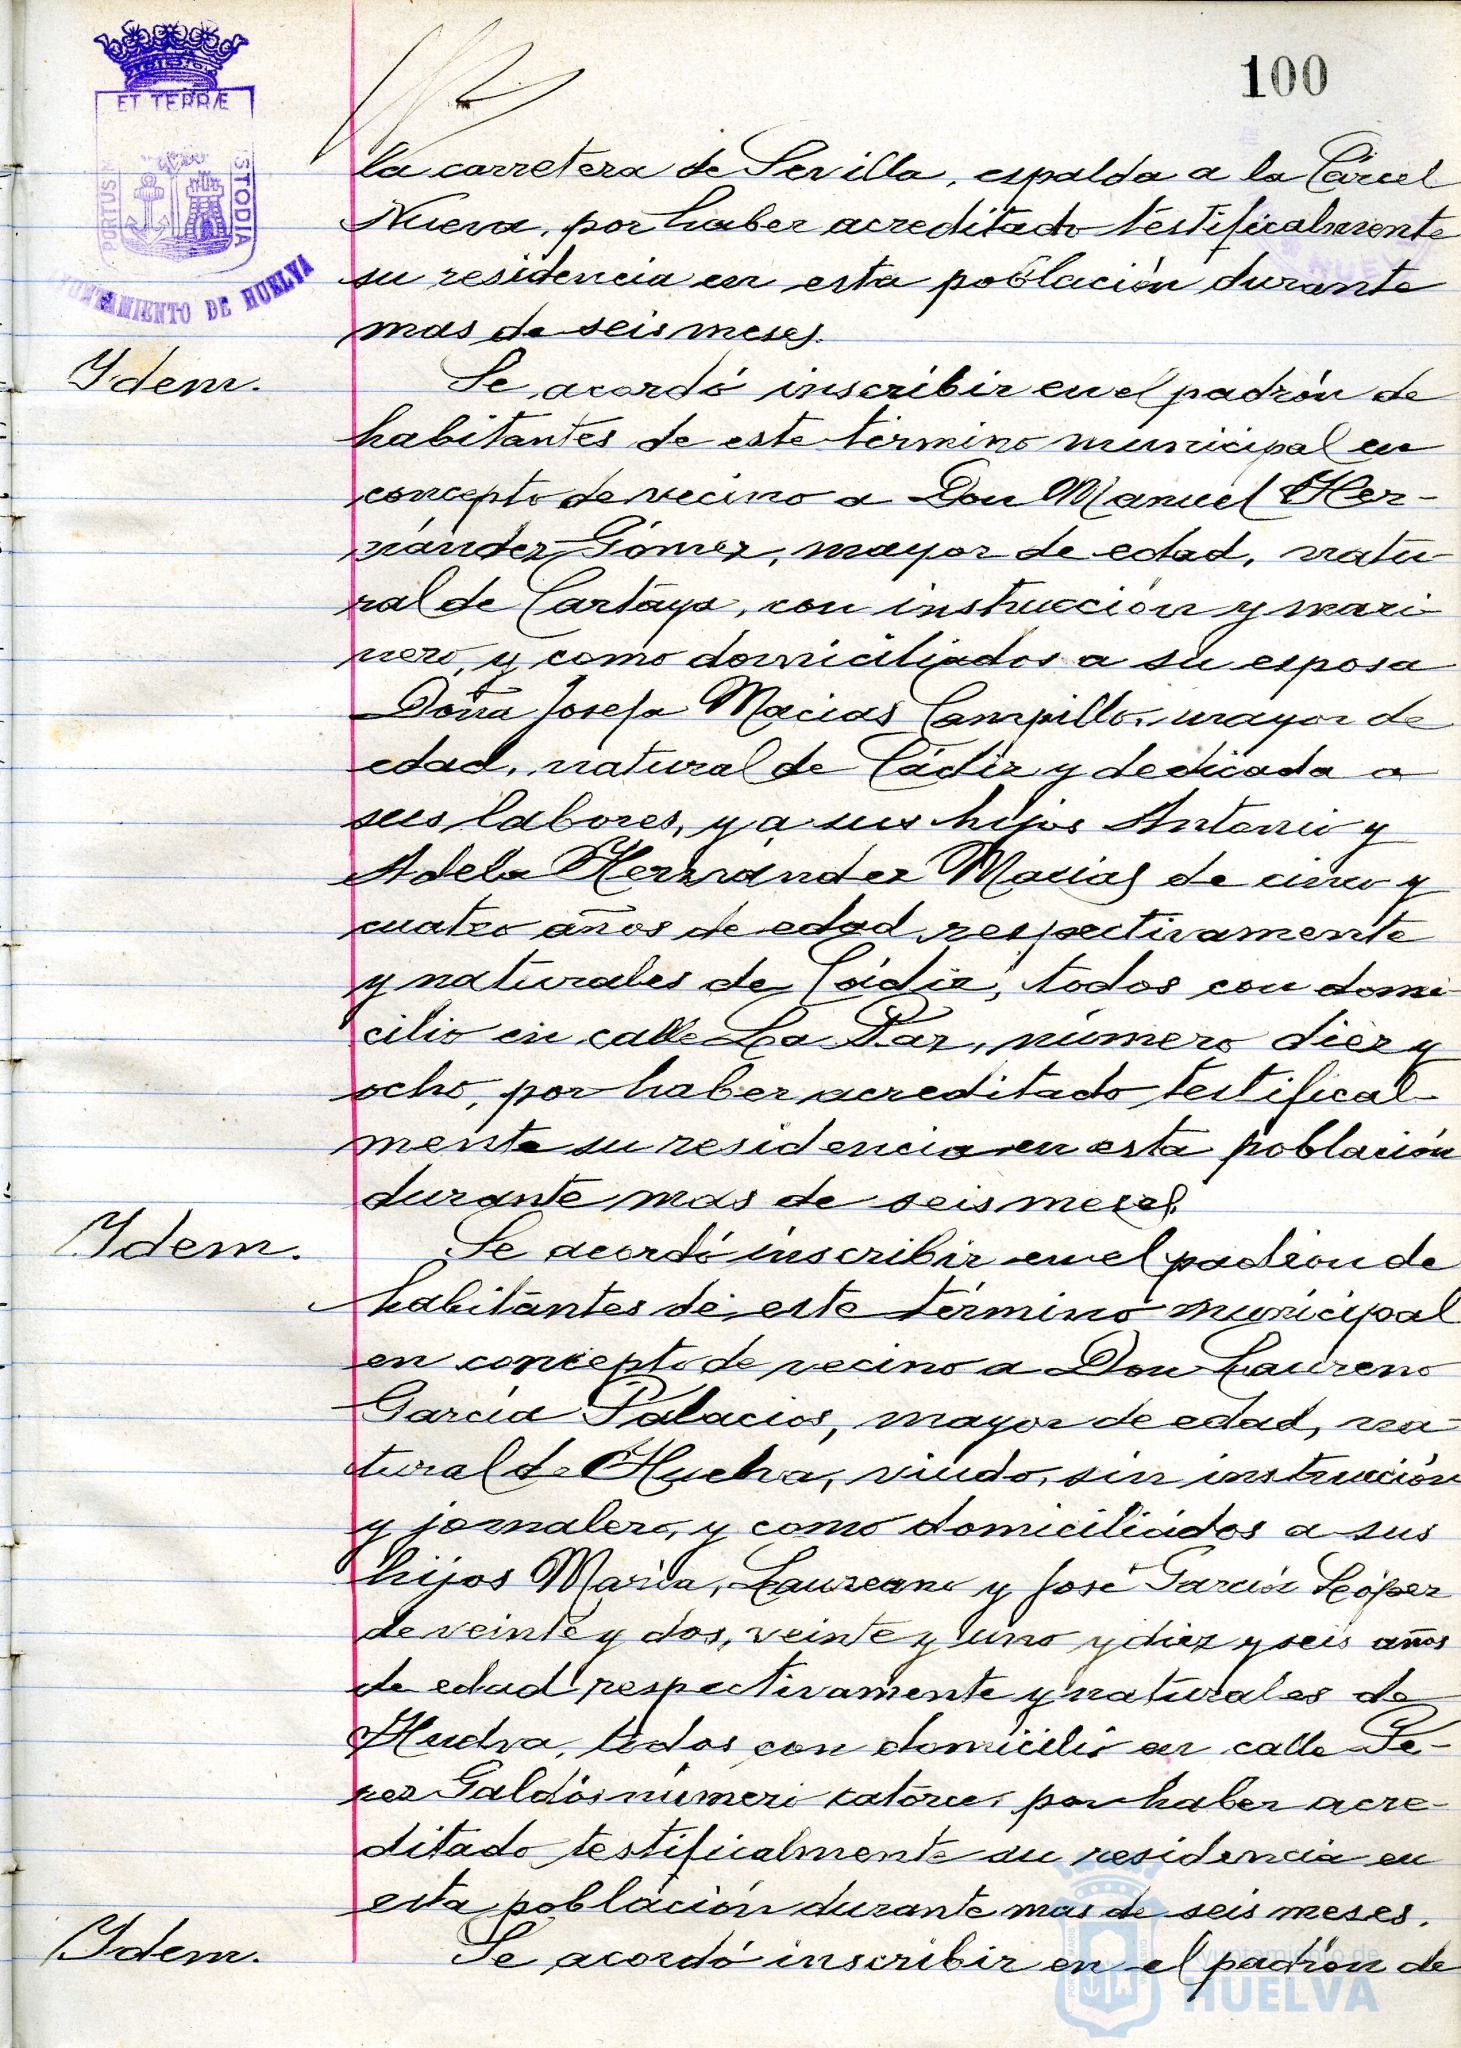 100
ET TERRÆ
PORTUS
STODIA
UNTAMIENTO DE HUELVA
la carretera de Sevilla, espalda a la Cárcel
Nueva, por haber acreditado testificalmente
su residencia en esta población durante
mas de seis meses.
Ydem.
Se acordó inscribir en el padrón de
habitantes de este término municipal en
concepto de vecino a Don Manuel Her-
nández Gómez, mayor de edad, natu-
ral de Cartaya, con instrucción y mari-
nero, y como domiciliados a su esposa
Doña Josefa Macias Campillo, mayor de
edad, natural de Cádiz y dedicada a
sus labores, y a sus hijos Antonio y
Adela Hernández Macias de cinco y
cuatro años de edad respectivamente
y naturales de Cádiz, todos con domi-
cilio en calle La Paz, número diez y
ocho, por haber acreditado testifical-
mente su residencia en esta población
durante mas de seis meses.
Ydem.
Se acordó inscribir en el padrón de
habitantes de este término municipal
en concepto de vecino a Don Laureno
García Palacios, mayor de edad, na-
tural de Huelva, viudo, sin instrucción
y jornalero, y como domiciliados a sus
hijos María, Laureano y José García López
de veinte y dos, veinte y uno y diez y seis años
de edad respectivamente y naturales de
Huelva, todos con domicilio en calle Pé-
rez Galdós número catorce, por haber acre-
ditado testificalmente su residencia en
esta población durante mas de seis meses.
Ydem.
Se acordó inscribir en el padrón de
Ayuntamiento de
HUELVA